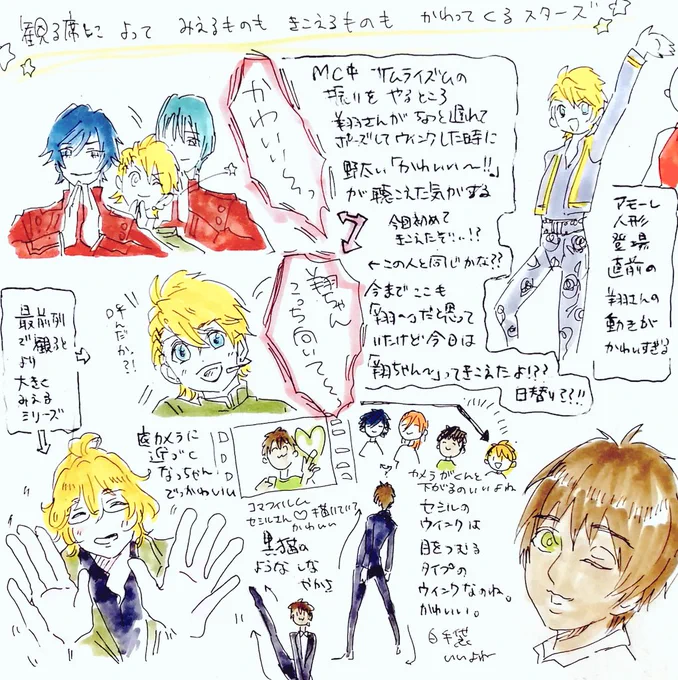 観る席によって みえるものも きこえるものも かわってくるスターズ
かわいい〜っ
MC中 サムライズムの
振りを やるところ
翔さんが ちょっと遅れて
ポーズして ウインクした時に
野太い「かわいい〜!!」
が聴こえた気がする
今日初めて
きこえたぞぃぃ!?
←この人と同じかな??
今まで ここも
「翔〜っ」だと思って
いたけど 今日は
「翔ちゃん〜」ってきこえたよ!??
日替り??!!
翔ちゃん
こっち向いて〜
呼んだか?!
アモーレ
人形
登場
直前の
翔さんの
動きが
かわいすぎる
最前列
で観ると
より
大きく
みえる
シリーズ
カメラに
近づく
なっちゃん
でっかわいい
コマフィルム
セシルさん♡描いていて
かわいい
カメラがぐんと
下がるのいいよね
黒猫の
ような しな
やかさ
セシルの
ウインクは
目をつむる
タイプの
ウインクなのね。
かわいい。
いいよね〜